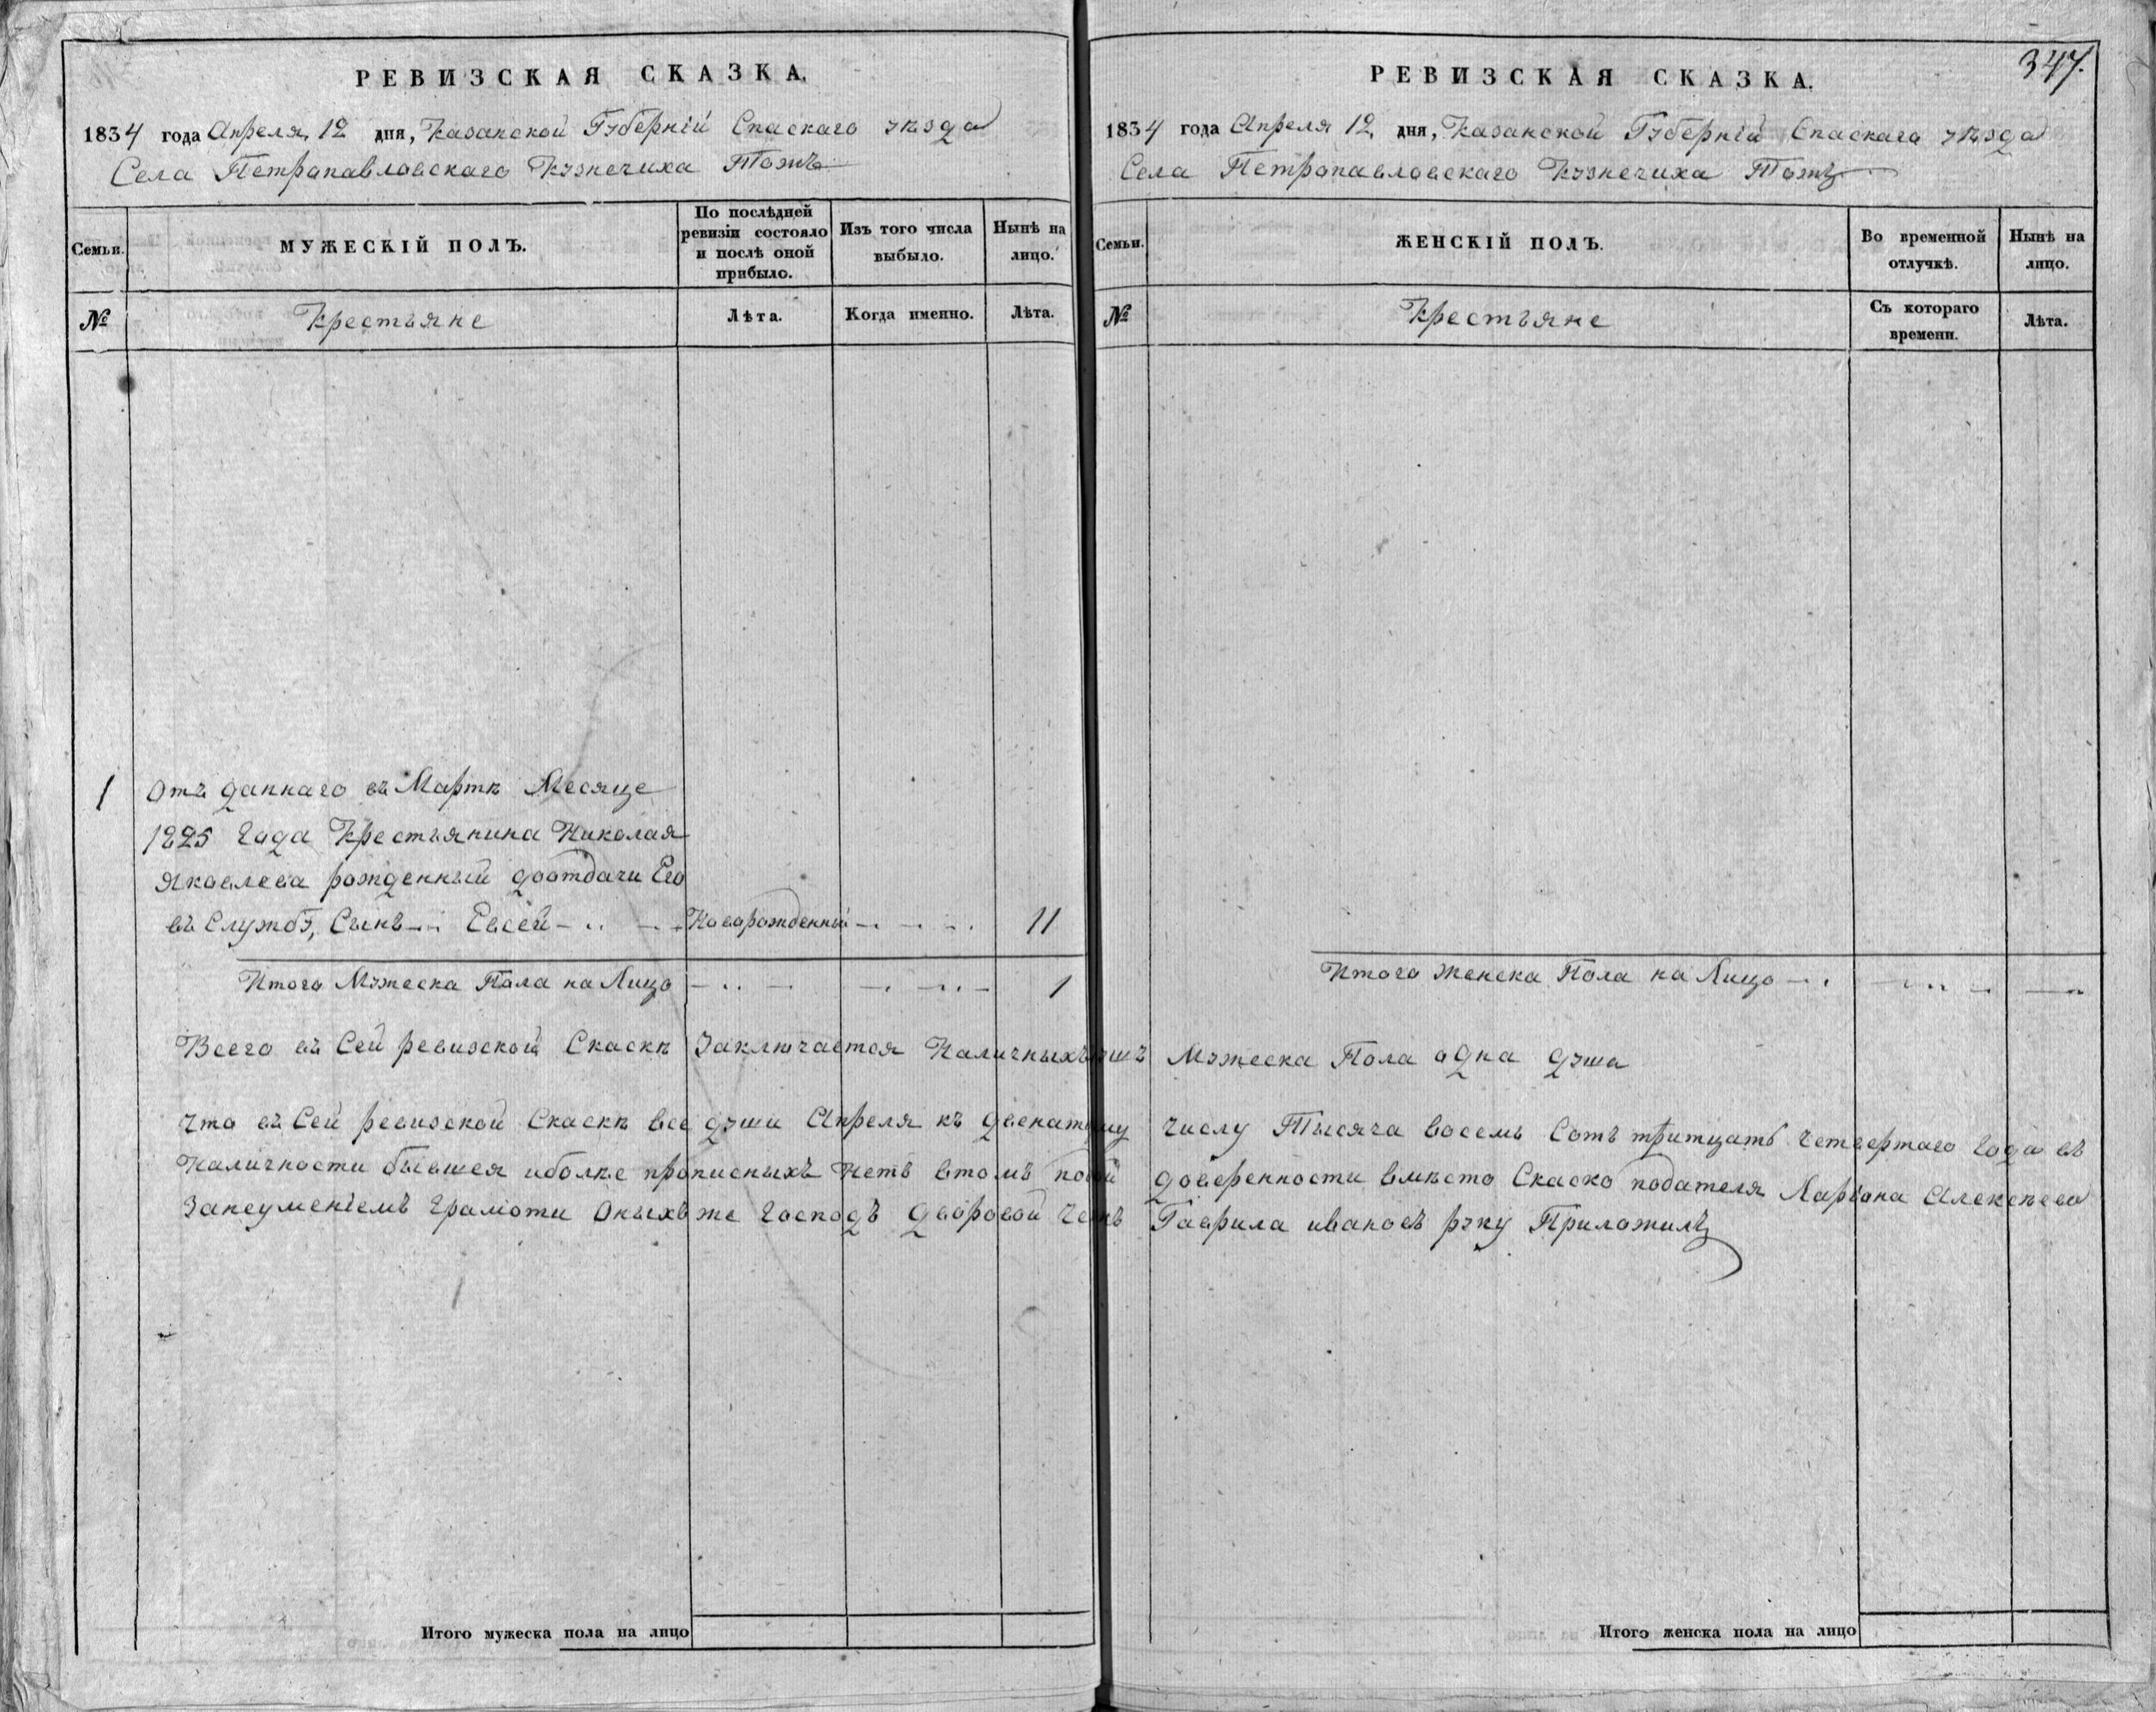 РЕВИЗСКАЯ СКАЗКА.
1834 года Апреля 12 дня, Казанской Губерніи Спаскаго уѣзда
Села Петрапавловскаго Кузнечиха Тожъ
Семьи.
МУЖЕСКІЙ ПОЛЪ.
По послѣдней ревизіи состояло и послѣ оной прибыло.
Изъ того числа выбыло.
Нынѣ на лицо.
№
Крестьяне
Лѣта.
Когда именно.
Лѣта.
1 Отъ даннаго въ Мартѣ Месяце
1825 Года Крестьянина Николая
Яковлева рожденный доотдачи Его
въ Службу, Сынъ Евсей Новорожденный 11
Итого Мужеска Пола на Лицо 1
347.
РЕВИЗСКАЯ СКАЗКА.
1834 года Апреля 12 дня, Казанской Губерніи Спаскаго уѣзда
Села Петропавловскаго Кузнечиха Тожъ
Семьи.
ЖЕНСКІЙ ПОЛЪ.
Во временной отлучкѣ.
Нынѣ на лицо.
№
Крестьяне
Съ котораго времени.
Лѣта.
Итого Женска Пола на Лицо
Всего въ Сей ревизской Скаскѣ Заключается Наличныхъ душъ Мужеска Пола одна душа
Что въ Сей ревизской Скаскѣ все души Апреля къ двенатцму числу Тысяча восемь Сотъ тритцать четвертаго Года въ
Наличности бывшея иболѣе прописныхъ нетъ втомъ подоверенности вмѣсто Скаско подателя Ларіона Алексѣева
Занеуменіемъ Грамоти Оныхъ же Господъ Дворовой Чевкъ Гаврила ивановъ руку Приложилъ
Итого мужеска пола на лицо
Итого женска пола на лицо